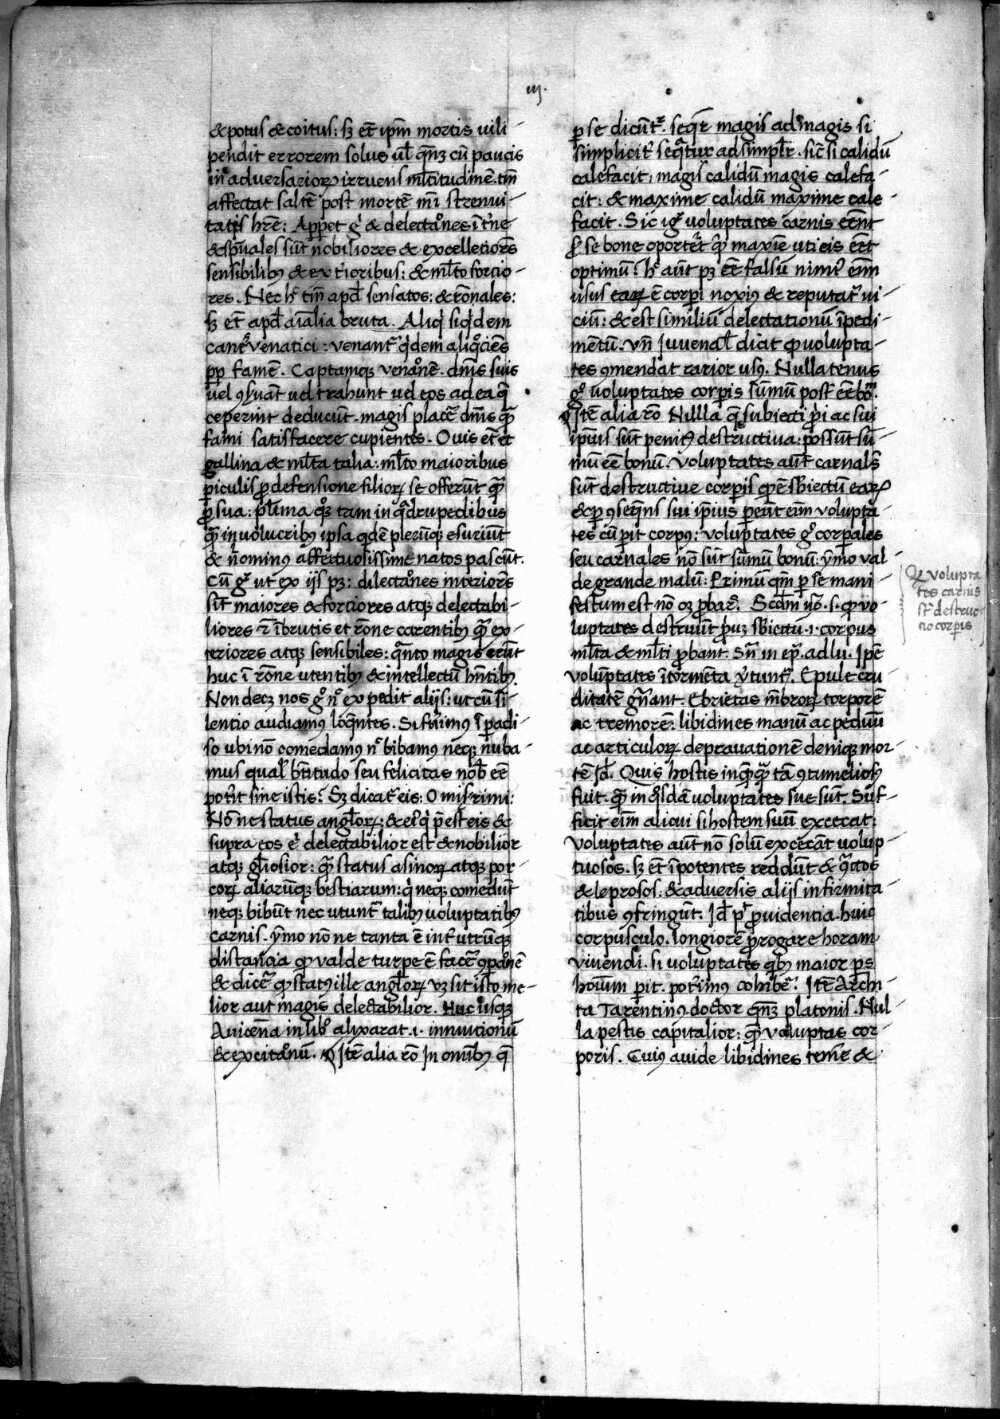 iij.
& potus & coitus: sꝫ et̄ ip̄m mortis uili-
pendit errorem solus ul̄ qn̄qꝫ cū paucis
in adversarioꝝ irruens ml̄titudinē. tn̄
affectat saltē post mortē strenui-
tatis hr̄e: Appet gͥ & delectat̄ones īt̄ne
& spūales sūt nobiliores & excellētiores
sensibilibꝰ & ext̄ioribus: & ml̄to forcio-
res. Nec h̄ tm̄ apd̄ sensatos: & rōnales:
sꝫ et̄ apd̄ aīalia bruta. Aliq̄ siqͥdem
canes venatici: venant̄ qͥdem aliqͦciēs
pp̄ famē. Captamqꝫ venat̄onē. dn̄is suis
vel ꝯsuant vel trahunt vel eos ad ea q̄
ceperint deducūt. magis placē dn̄is qꝫ̄
fami satisfacere cupientes. Ouis et̄ et
gallina & ml̄ta talia: ml̄to maioribus
piculis ꝓ defensione filioꝝ se offerūt qꝫ̄
ꝓ sua: pl̄ima qꝫ tam in qͣdrupedibus
qꝫ̄ in uolucribꝰ ipsa qͥdē pler̄ūqꝫ esuriūt
& nominꝰ affectuosissime natos pascūt.
Cū gͦ ut ex ijs pꝫ: dilectat̄ones interiors
sūt maiores & forciores atqꝫ delectabi-
liores ī brutis et rōne carentibꝰ qꝫ̄ ex-
teriores atqꝫ sensibiles: qn̄to magis erūt
huc ī rōne utentibꝰ & intellectū hn̄tibꝰ.
Non decꝫ nos gͦ nͦ expedit alijs: ut cū si-
lentio audiamꝰ loqn̄tes. Si fūimus ī padi-
so ubi nō comedamꝰ nͨ bibamꝰ neqꝫ nuba-
mus qual̄ btītudo seu felicitas nob̄ eē
pot̄it sine istis: Sꝫ dicat̄ eis: O mis̄rimi:
Nōne status angl̄oꝝ: & eiꝰ qͥ p̄est eis &
supra eos ē delectabilior est & nobilior
atqꝫ gl̄iosior: qꝫ̄ status asinoꝝ atqꝫ por-
coꝝ aliarūqꝫ bestiarum: qͥ neqꝫ comedūt
neqꝫ bibūt nec utunt̄ talibꝰ uoluptatibꝰ
carnis. ȳmo nōne tanta ē int̄ utrūqꝫ
distancia ꝙ valde turpe ē facē ꝯpat̄onē
& dicē ꝙ statꝰ ille angl̄oꝝ vꝫ sit isto me-
lior aut magis delectabilior. Huc usqꝫ
Auicēna in libͦ alixarat .i. innuitionū
& excitat̄onū. Itē alia rō In omībꝰ q̄
ꝑ se dicūt̄. seqͥt̄ magis ad magis si
simplicit̄ seqͥtur ad simpl̄r. sic si calidū
calefacit: magis calidū magis calefa-
cit: & maxime calidū maxime cale-
facit. Sic igͥ voluptates carnis eēnt
ꝑ se bone oporteret qͥ maxīe uti eis eēt
optimū: h̄ aūt pꝫ eē falsū nimiꝰ eīm
usus eaꝝ ē corpi noxiꝰ & reputat̄ ui-
ciū: & est similiū delectationū īpedi-
mētū. vn̄ juvenal̄ dicit ꝙ volupta-
tes ꝯmendat rarior usꝰ. Nullatenus
gͦ voluptates corpis sūmū post̄ eē bōꝫ
Itē alia rō Nulla q̄ subiecti ꝓpi ac sui
ipsius sūt penitꝰ destructiva: possūt sū-
mū eē bonū. voluptates aūt carnals̄
sūt destructive corpis qͥ ē sbiectū eaꝝ
& ꝑ ꝯseqn̄s sui ipsius perūt eīm volupta-
tes cū pit corpꝰ: voluptates gͦ corpales
seu carnales nō sūt sūmū bonū: ȳmo val-
de grande malū: Primū qͥm ꝑ se mani-
festum est nō oꝫ ꝓbarͥ. Scd̄m uͦ .s. ꝙ vo-
luptates destruūt ꝓpriuꝫ sbiectū .i. corpus
ml̄ta & ml̄ti ꝓbant. Sn̄ in ep̄. ad lu. Ip̄e
voluptates ī tormēta v̄tunt̄. Epule cru-
ditatē gn̄ant. Ebrietas mēbroꝝ torporē
ac tremorē: libidines manuū ac peduū
ac articuloꝝ depravationē deniqꝫ mor-
tē id. Quis hostis in quēqꝫ̄ tā ꝯtumeliosꝰ
fuit. qꝫ̄ in qͦsdā voluptates sue sūt. Suf-
ficit eīm alicui si hostem suū excecat:
Voluptates aūt nō solū excecāt volup-
tuosos. sꝫ et̄ īpotentes reddūt &
& leprosos: & adversis alijs infirmita-
tibus ꝯfringūt. Id̄ pͥ ꝓuidentia huiꝰ
corpusculo. longiorē ꝓrogare horam
vivendi. si voluptates qͥbꝰ maior ps
hoīum pit. poterimus cohibe. Itē Archi-
ta Tarentinꝰ doctor qn̄qꝫ platonis. Nul-
la pestis capitalior: qꝫ̄ voluptas cor-
poris. Cuiꝰ auide libidines teme &
Qͩ volupta
tes carnis
st̄ destruc-
tio corpis